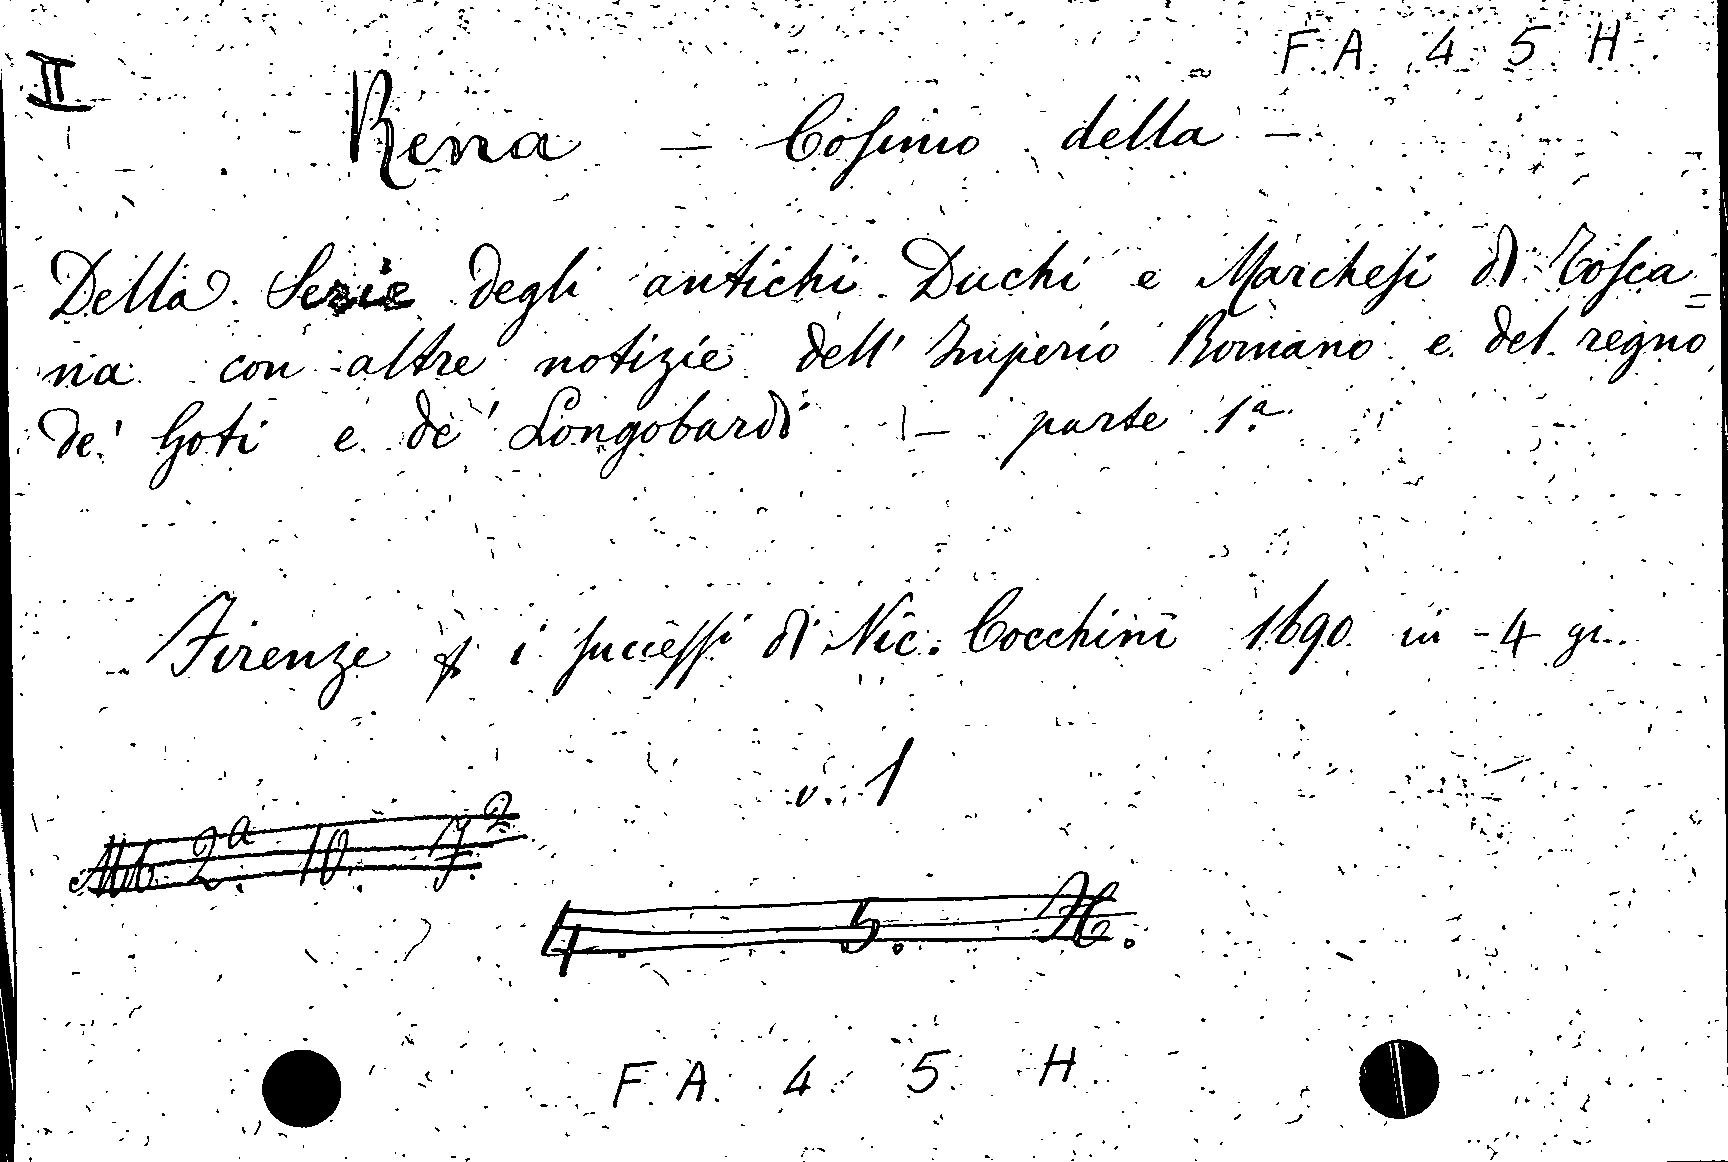 F. A. 4 5 H
II
Rena — Cosimo della —
Della Serie degli antichi Duchi e Marchesi di Tosca=
na con altre notizie dell' Imperio Romano e del regno
de' Goti e de' Longobardi — parte 1ª
Firenze p i successi di Nic. Cecchini 1690 in-4 gr.
v. 1
2ª 10. 7²
4. 5. H.
F. A. 4 5 H